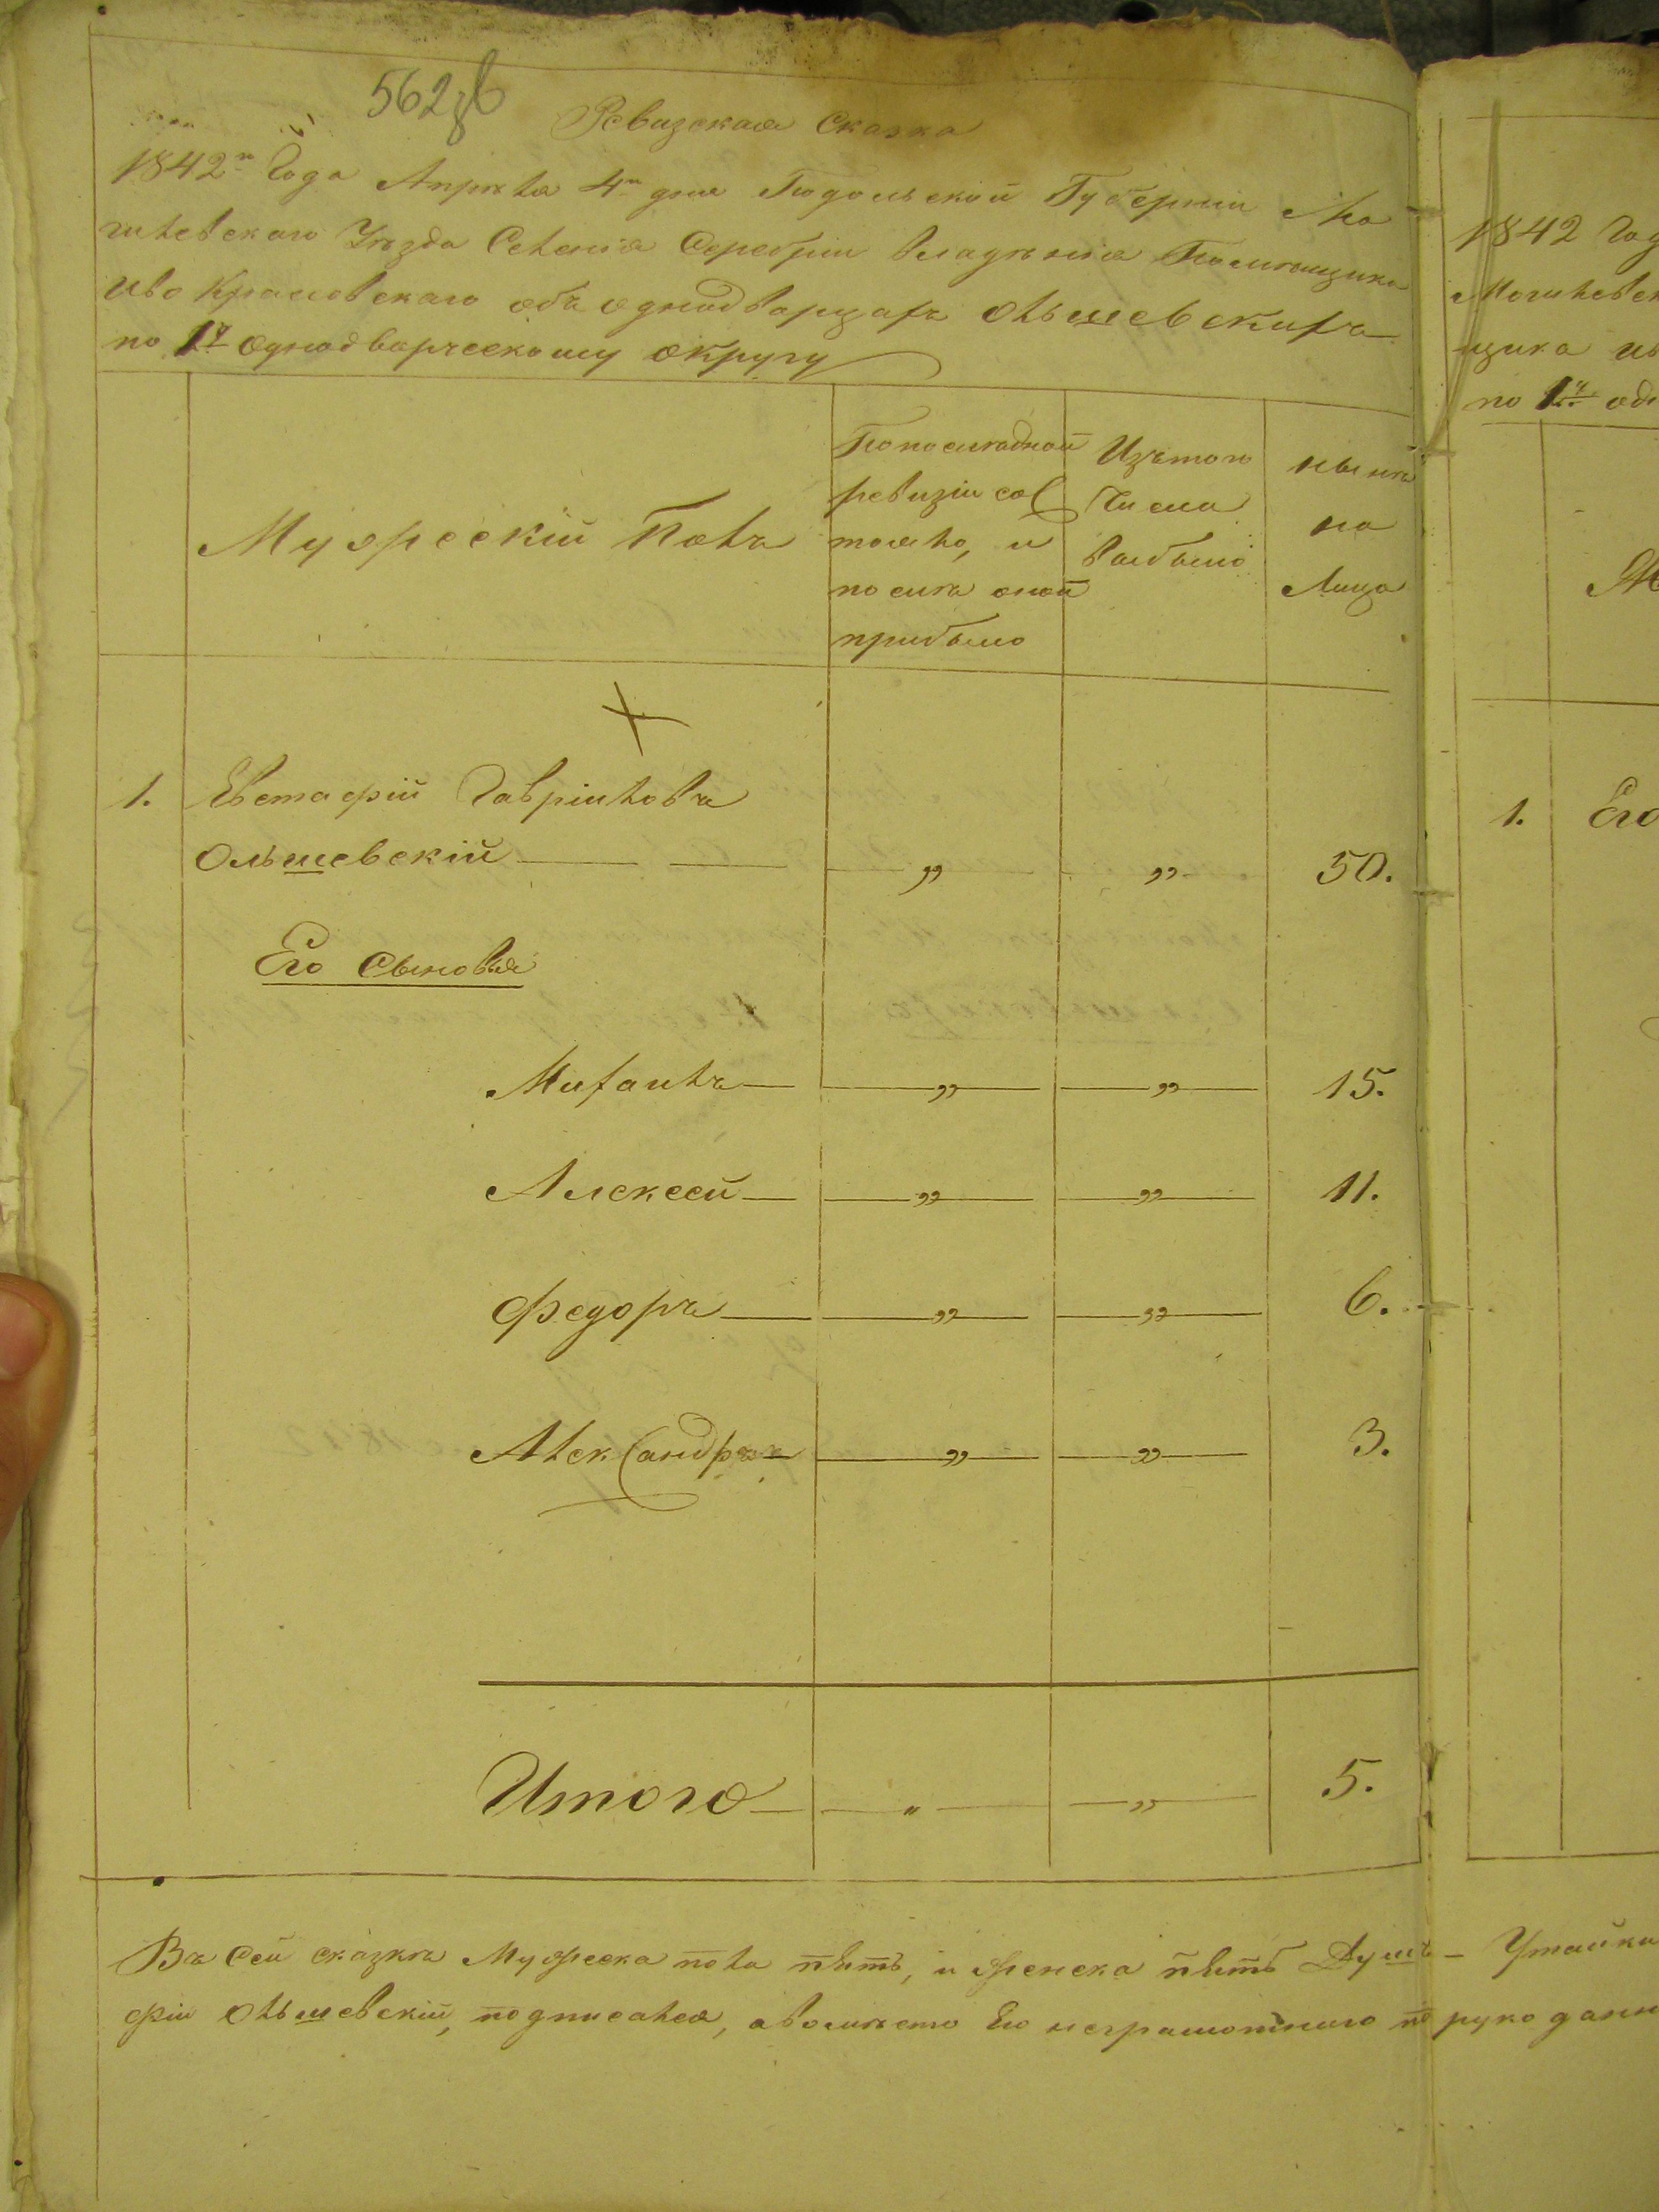 562
Ревизская Сказка
1842го Года Апреля 4го дня Подольской Губернии Мо
гилевскаго Уезда Селенія Серебріи владенія Помещика
Иво Крашовскаго объ однодворцахъ Ольшевскихъ
по 1у однодворческому округу
Мужескій Полъ
По последней
ревизіи сос
тояло, и
после оной
прибыло
Изътого
Числа
выбыло
ныне
на
Лицо
1. Евстафій Гавріиловъ
Ольшевскій „ „ 50.
Его Сыновья
Михаилъ „ „ 15.
Алексей „ „ 11.
Федоръ „ „ 6.
Александръ „ „ 3.
Итого „ „ 5.
Въ Сей сказке Мужеска пола пять, и женска пять Душъ – Утайки
фій Ольшевскій, подписался, авместо Его неграмотнаго по руко данн
1842 Год
Могилевск
щика Ив
по 1у од
1. Его